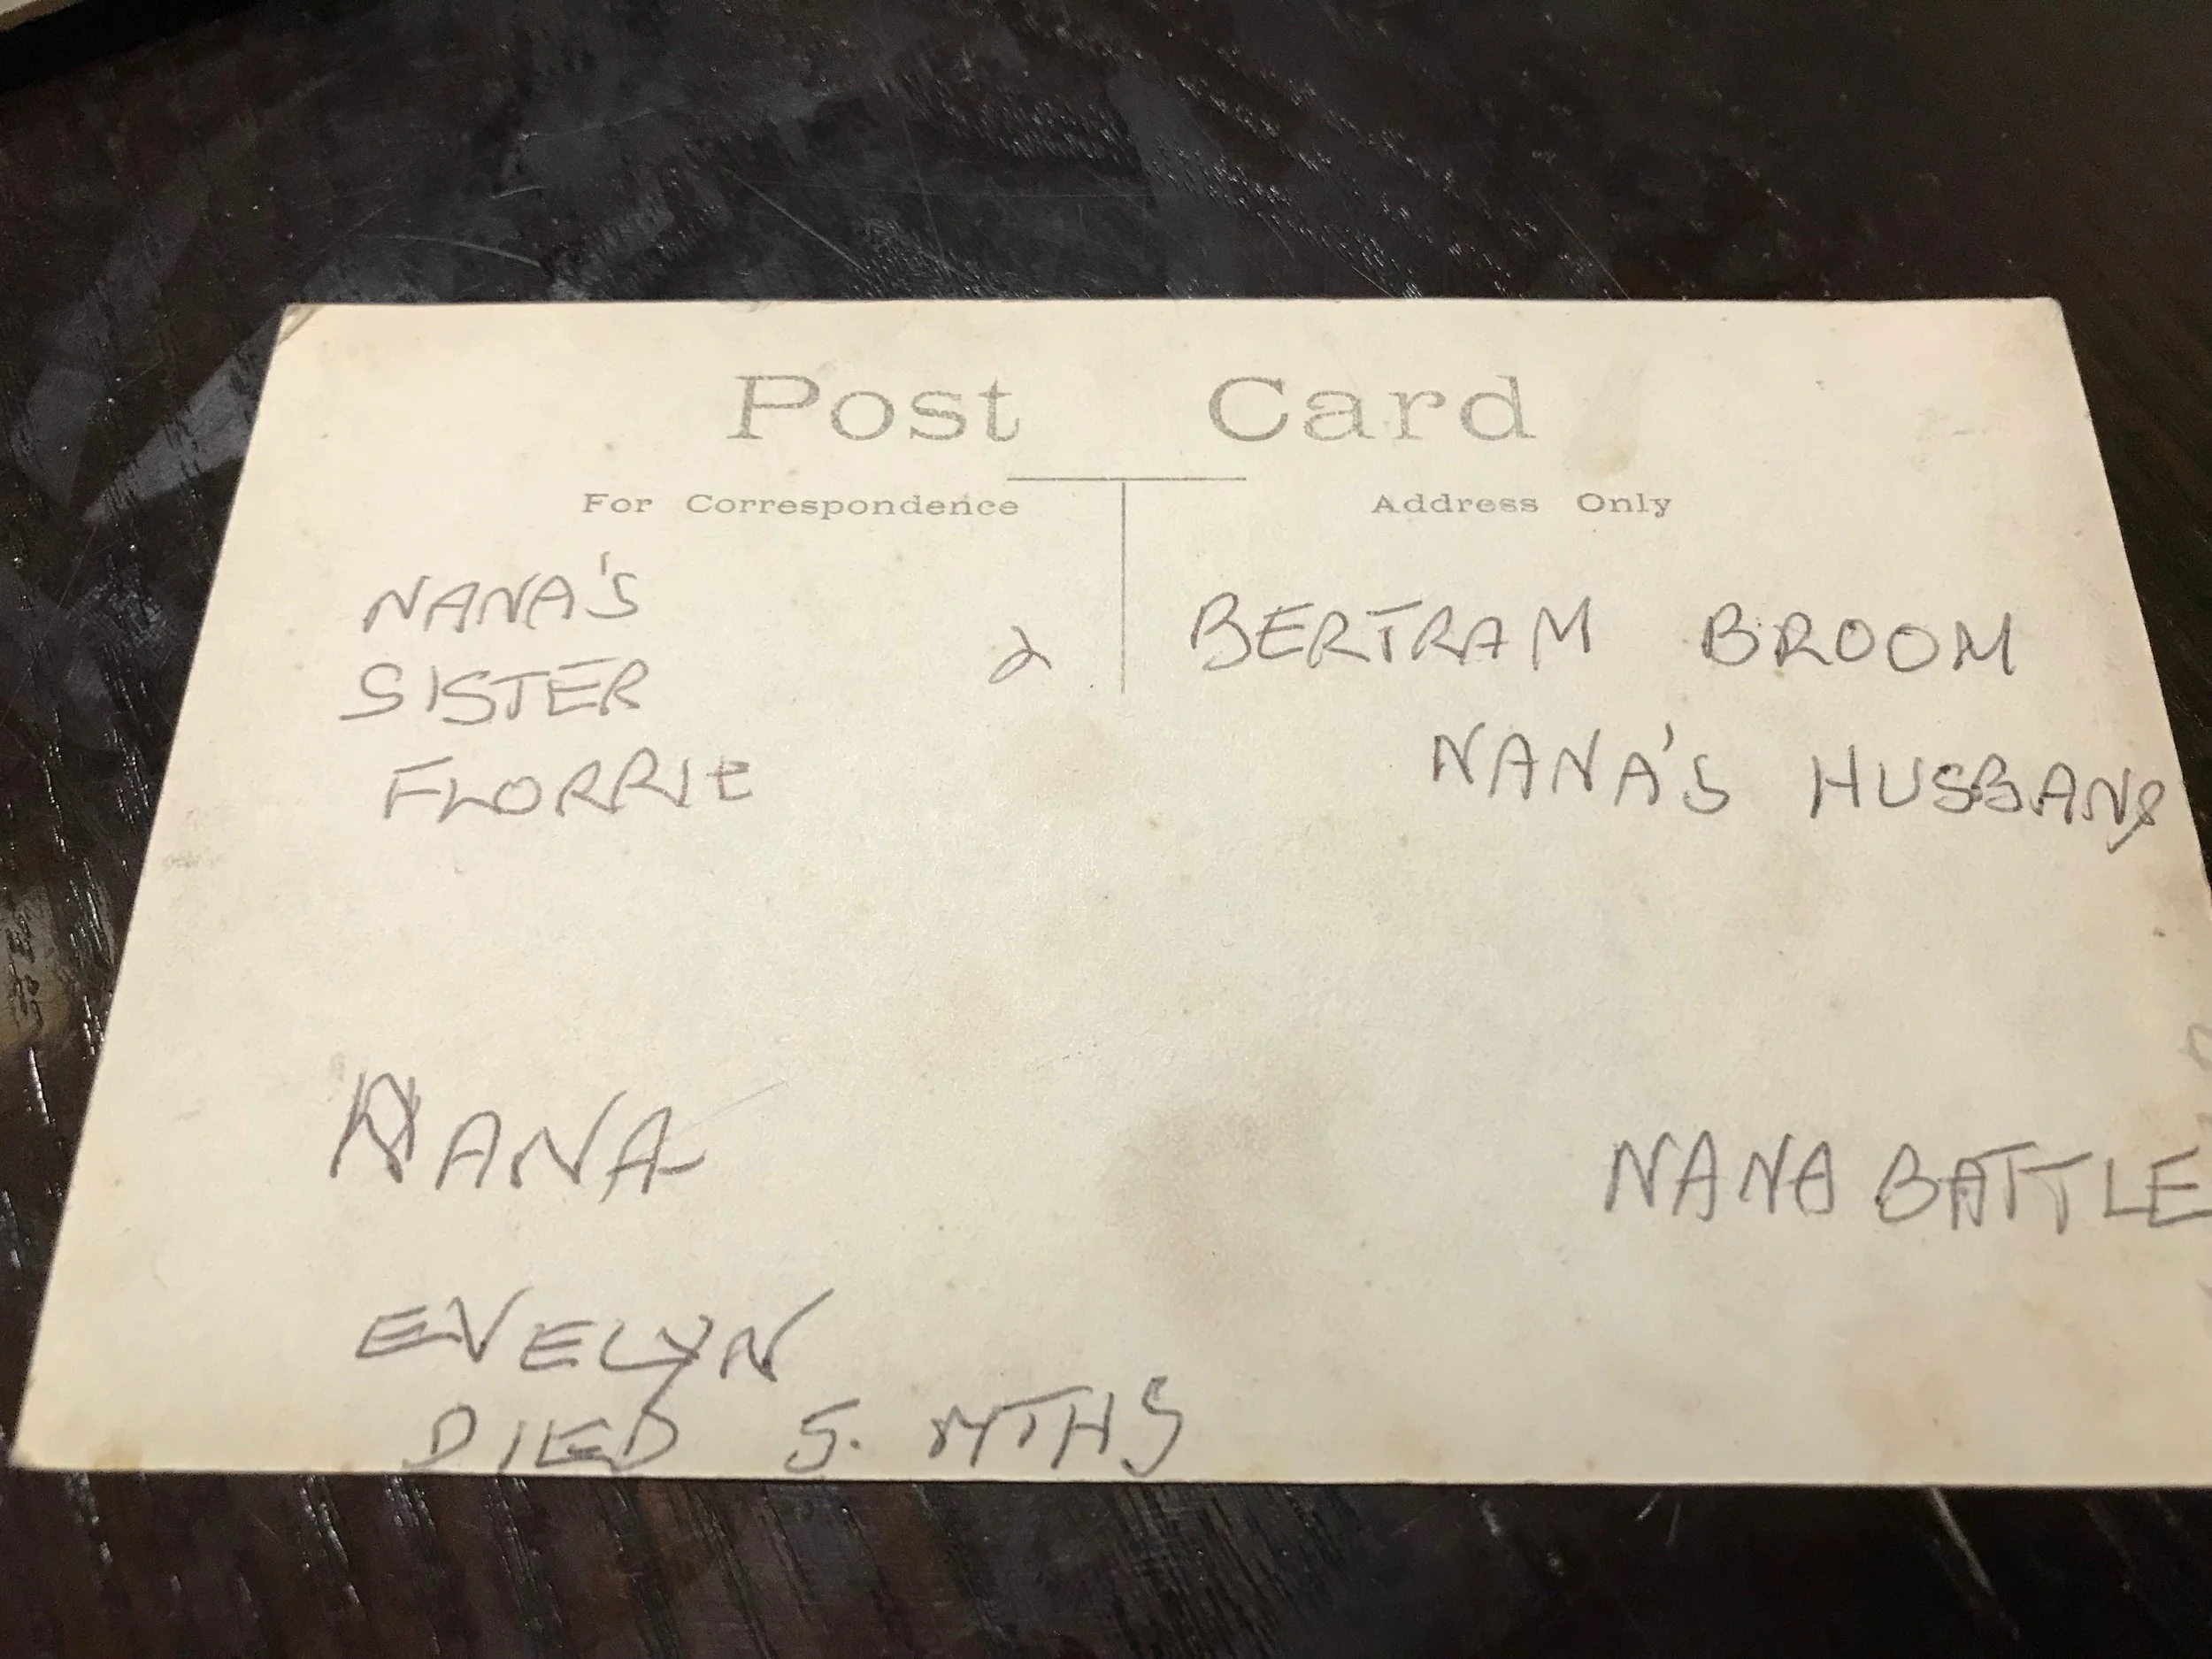 Post Card
For Correspondence Address Only
NANA'S
SISTER
FLORRIE
& BERTRAM BROOM
NANA'S HUSBAND
NANA
NANA BATTLE
EVELYN
DIED 5. MTHS